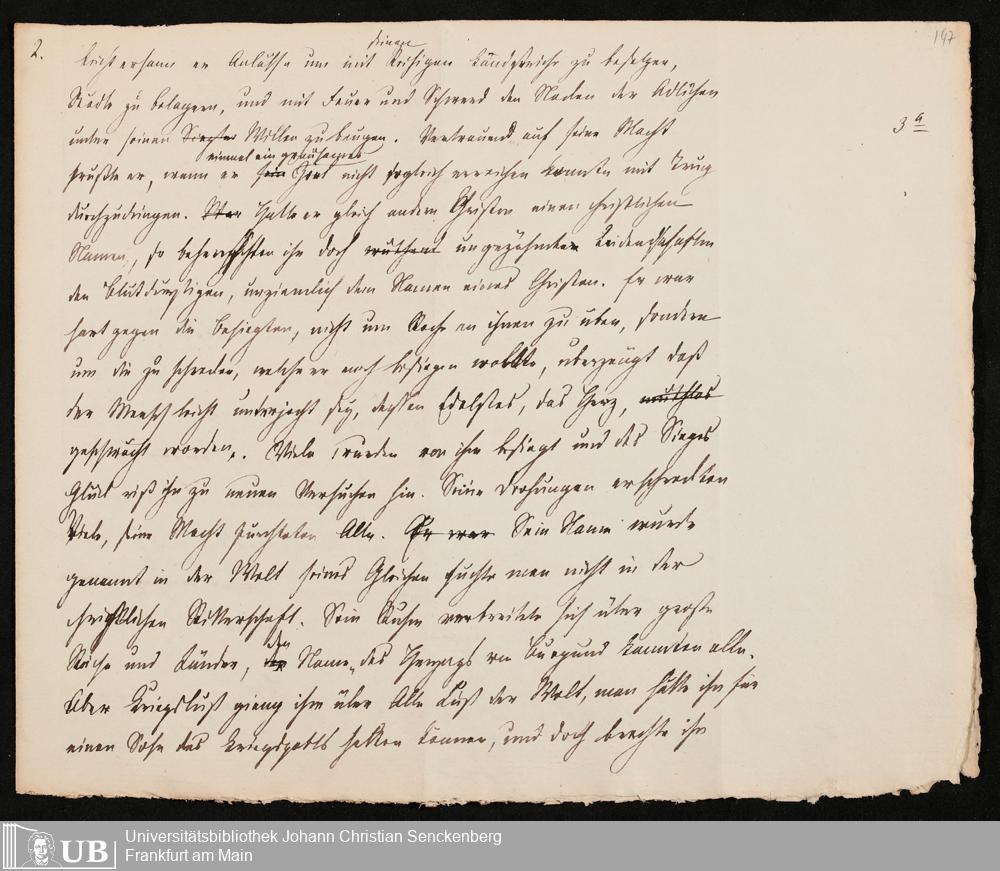 2.
147
seinen
Leicht ersann er Anlässe um mit Ruhigen Landstriche zu besetzen,
Städte zu belagern, und mit Feuer und Schwerd den Nacken der Adlichen
3 a
unter seinen Willen zu beugen. Vertrauend auf seine Macht
einmal ein grausames
er, wenn er sein Ziel nicht sogleich erreichen konnte mit Trug
durchzudringen. War Hatte er gleich andern Christen einen christlichen
Namen, so beherrschten ihn doch wüthend ungezähmte Leidenschaften
den Blutdurstigen, unziemlich dem Namen eines Christen. Er war
hart gegen die Besiegten, nicht um Rache an ihnen zu üben, sondern
um die zu schrecken, welche er noch besiegen wollte, überzeugt daß
der Mensch leicht unterjocht sey, dessen Edelstes, das Herz, muthlos
geschwächt worden. Viele wurden von ihm besiegt und des Sieges
Glück riß ihn zu neuen Versuchen hin. Seine Drohungen erschreckten
Viele, seine Macht fürchteten Alle. Er war Sein Name wurde
genannt in der Welt seines Gleichen suchte man nicht in der
christlichen Ritterschaft. Sein Ruhm verbreitete sich über große
den
Reiche und Länder, der Name des Herzogs von Burgund kannten alle.
Aber Kriegslust gieng ihm über Alle Lust der Welt, man hätte ihn für
einen Sohn des Kriegsgotts halten können, und doch brachte ihn
UB
Universitätsbibliothek Johann Christian Senckenberg
Frankfurt am Main